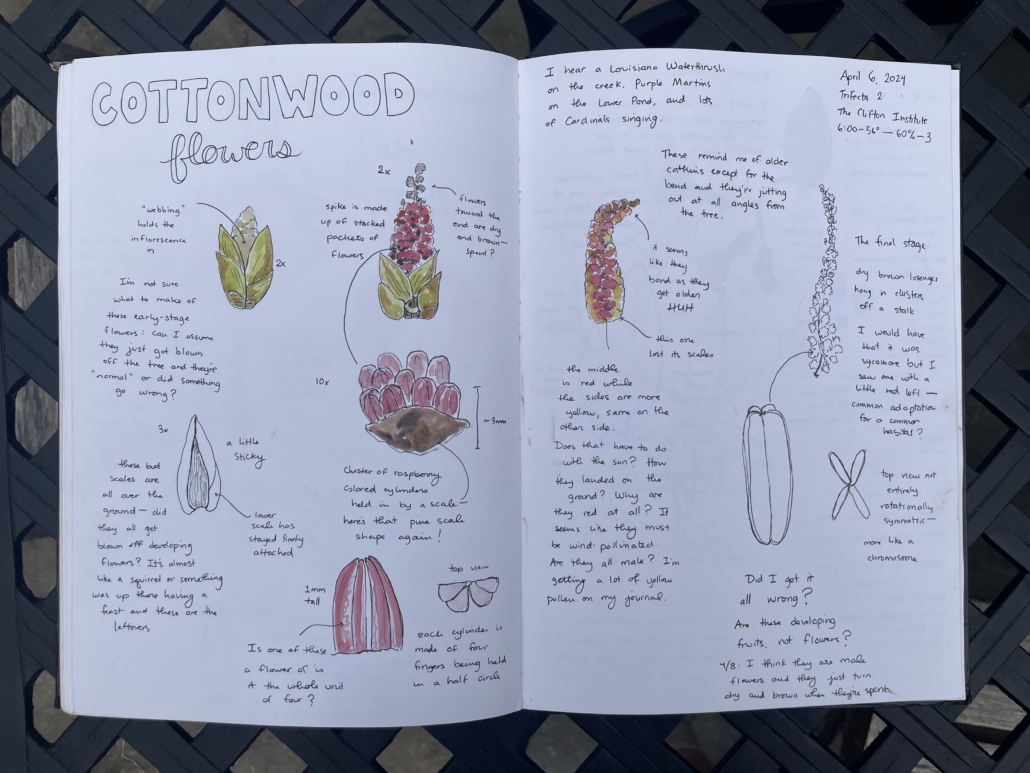 COTTONWOOD
flowers
"webbing"
holds the
inflorescence
in
2x
I'm not sure
what to make of
these early-stage
flowers: can I assume
they just got blown
off the tree and they're
"normal" or did something
go wrong?
2x
spike is made
up of stacked
packets of
flowers
flowers
toward the
end are dry
and brown—
spent?
10x
~3mm
cluster of raspberry
colored cylinders
held in by a scale—
here's that pure scale
shape again!
3x
a little
sticky
lower
scale has
stayed firmly
attached
these bud
scales are
all over the
ground — did
they all get
blown off developing
flowers? It's almost
like a squirrel or something
was up there having a
feast and these are the
leftovers
1mm
tall
Is one of these
a flower or is
it the whole unit
of four?
top view
each cylinder is
made of four
fingers being held
in a half circle
I hear a Louisiana Waterthrush
on the creek, Purple Martins
on the Lower Pond, and lots
of Cardinals singing.
April 6, 2024
Trifecta 2
The Clifton Institute
6:00—56°—60%—3
These remind me of older
catkins except for the
bend and they're jutting
out at all angles from
the tree.
it seems
like they
bend as they
get older
HUH
this one
lost its scales
the middle
is red while
the sides are more
yellow, same on the
other side.
Does that have to do
with the sun? How
they landed on the
ground? Why are
they red at all? It
seems like they must
be wind-pollinated.
Are they all male? I'm
getting a lot of yellow
pollen on my journal.
The final stage
dry brown lozenges
hang in clusters
off a stalk
I would have
that it was
sycamore but I
saw one with a
little red left —
common adaptation
for a common
habitat?
top view not
entirely
rotationally
symmetric—
more like a
chromosome
Did I get it
all wrong?
Are these developing
fruits, not flowers?
4/8: I think they are male
flowers and they just turn
dry and brown when they're spent.